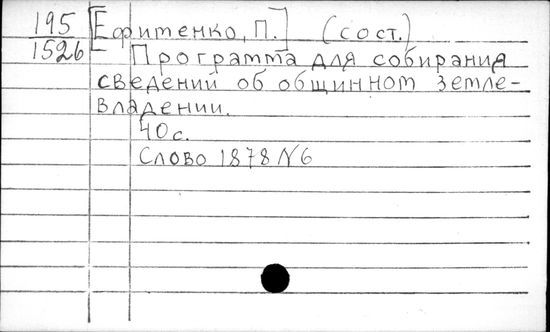 195 [Ефименко, П.] (сост.)
1526 Программа для собирания
сведений об общинном земле-
владении.
40 с.
Слово 1878 N6